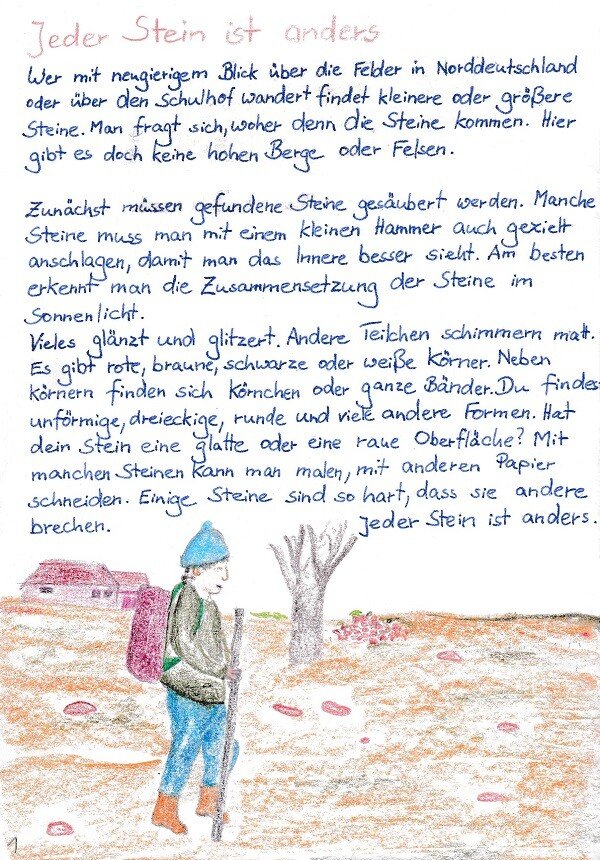 Jeder Stein ist anders
Wer mit neugierigem Blick über die Felder in Norddeutschland
oder über den Schulhof wandert findet kleinere oder größere
Steine. Man fragt sich, woher denn die Steine kommen. Hier
gibt es doch keine hohen Berge oder Felsen.
Zunächst müssen gefundene Steine gesäubert werden. Manche
Steine muss man mit einem kleinen Hammer auch gezielt
anschlagen, damit man das Innere besser sieht. Am besten
erkennt man die Zusammensetzung der Steine im
Sonnenlicht.
Vieles glänzt und glitzert. Andere Teilchen schimmern matt.
Es gibt rote, braune, schwarze oder weiße Körner. Neben
körnern finden sich Körnchen oder ganze Bänder. Du findes
unförmige, dreieckige, runde und viele andere Formen. Hat
dein Stein eine glatte oder eine raue Oberfläche? Mit
manchen Steinen kann man malen, mit anderen Papier
schneiden. Einige Steine sind so hart, dass sie andere
brechen. Jeder Stein ist anders.
1